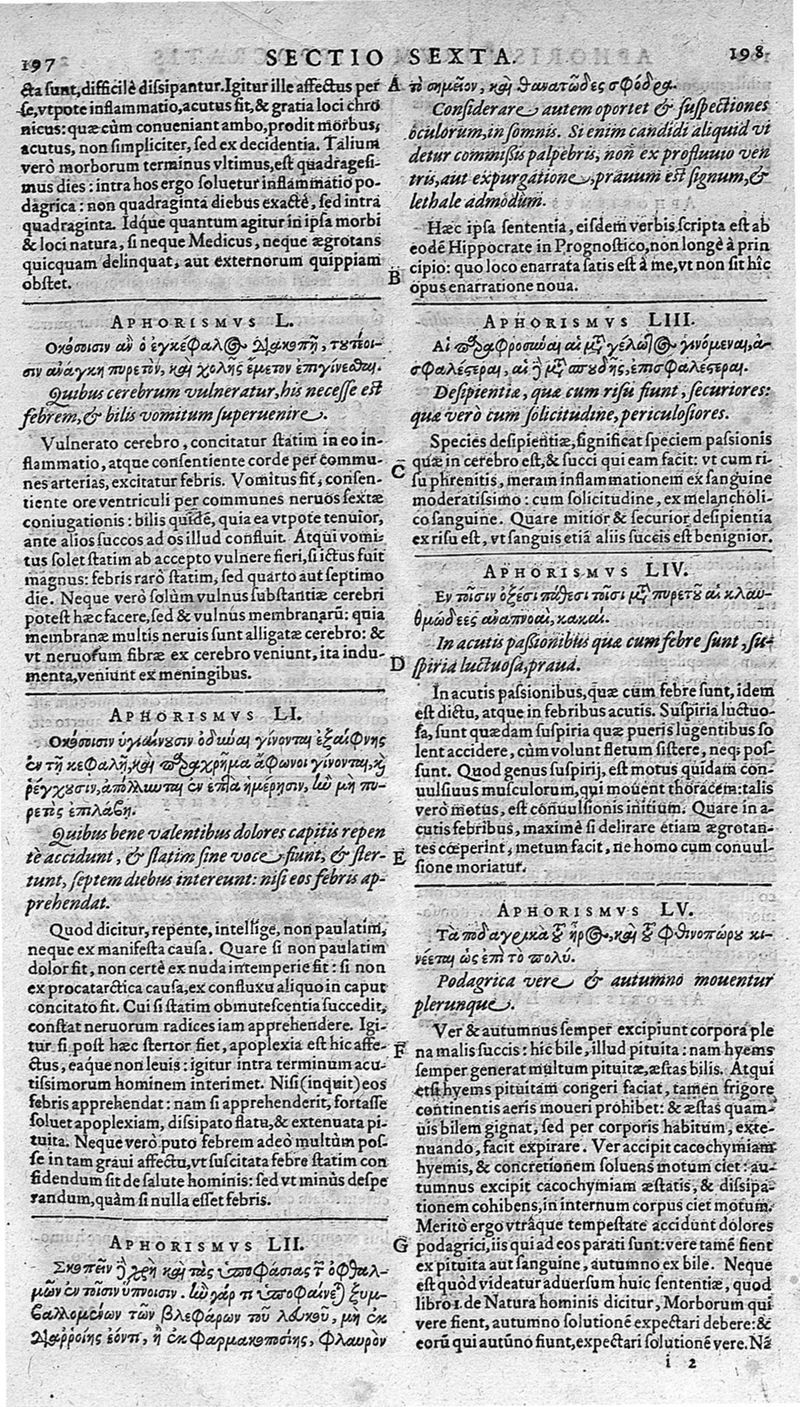 197
SECTIO SEXTA.
198
cta sunt,difficilè dissipantur.Igitur ille affectus per
se,vtpote inflammatio,acutus fit,& gratia loci chro
nicus: quæ cùm conueniant ambo,prodit morbus,
acutus, non simpliciter, sed ex decidentia. Talium
verò morborum terminus vltimus,est quadragesi-
mus dies: intra hos ergo soluetur inflammatio po-
dagrica: non quadraginta diebus exactè, sed intrà
quadraginta. Idque quantum agitur in ipsa morbi
& loci natura, si neque Medicus, neque ægrotans
quicquam delinquat, aut externorum quippiam
obstet.
APHORISMVS L.
Οκόσοισιν αν ὁ ἐγκέφαλος διακοπῇ, τουτέοι-
σιν ἀνάγκη πυρετὸν, καὶ χολῆς ἔμετον ἐπιγίνεσθαι.
Quibus cerebrum vulneratur, his necesse est
febrem,& bilis vomitum superuenire.
Vulnerato cerebro, concitatur statim in eo in-
flammatio, atque consentiente corde per commu-
nes arterias, excitatur febris. Vomitus fit, consen-
tiente ore ventriculi per communes neruos sextæ
coniugationis: bilis quidē, quia ea vtpote tenuior,
ante alios succos ad os illud confluit. Atqui vomi-
tus solet statim ab accepto vulnere fieri, si ictus fuit
magnus: febris rarò statim, sed quarto aut septimo
die. Neque verò solùm vulnus substantiæ cerebri
potest hæc facere,sed & vulnus membranarū: quia
membranæ multis neruis sunt alligatæ cerebro: &
vt neruosum fibræ ex cerebro veniunt, ita indu-
menta,veniunt ex meningibus.
APHORISMVS LI.
Οκόσοισιν ὑγιαίνουσιν ὀδύναι γίνονται ἐξαίφνης
ἐν τῇ κεφαλῇ, καὶ παραχρῆμα ἄφωνοι γίνονται, καὶ
ῥέγχουσιν, ἀπόλλυνται ἐν ἑπτὰ ἡμέρῃσιν, ἢν μὴ πυ-
ρετὸς ἐπιλάβῃ.
Quibus bene valentibus dolores capitis repen
tè accidunt, & statim sine voce fiunt, & ster-
tunt, septem diebus intereunt: nisi eos febris ap-
prehendat.
Quod dicitur, repente, intellige, non paulatim,
neque ex manifesta causa. Quare si non paulatim
dolor fit, non certè ex nuda intemperie fit: si non
ex procatarctica causa,ex confluxu aliquo in caput
concitato fit. Cui si statim obmutescentia succedit,
constat neruorum radices iam apprehendere. Igi-
tur si post hæc stertor fiet, apoplexia est hic affe-
ctus, eaque non leuis: igitur intra terminum acu-
tissimorum hominem interimet. Nisi(inquit)eos
febris apprehendat: nam si apprehenderit, fortasse
soluet apoplexiam, dissipato flatu,& extenuata pi-
tuita. Neque verò puto febrem adeò multùm pos-
se in tam graui affectu,vt suscitata febre statim con
fidendum sit de salute hominis: sed vt minùs despe
randum,quàm si nulla esset febris.
APHORISMVS LII.
Σκοπεῖν δὲ χρὴ καὶ τὰς ὑποφάσιας τῶν ὀφθαλ-
μῶν ἐν τοῖσιν ὕπνοισιν. ἢν γάρ τι ὑποφαίνεται ξυμ-
βαλλομένων τῶν βλεφάρων τοῦ λευκοῦ, μὴ ἐκ
διαρροίης ἐόντι, ἢ ἐκ φαρμακοποσίης, φλαῦρον
A
τὸ σημεῖον, καὶ θανατῶδες σφόδρα.
Considerare autem oportet & suspectiones
oculorum,in somnis. Si enim candidi aliquid vi
detur commissis palpebris, non ex profluuio ven
tris,aut expurgatione,prauum est signum,&
lethale admodum.
Hæc ipsa sententia, eisdem verbis,scripta est ab
eodē Hippocrate in Prognostico,non longè à prin
B
cipio: quo loco enarrata satis est à me,vt non sit hîc
opus enarratione noua.
APHORISMVS LIII.
Αἱ παραφροσύναι αἱ μὲν μετὰ γέλωτος γινόμεναι, ἀ-
σφαλέστεραι, αἱ δὲ μετὰ σπουδῆς, ἐπισφαλέστεραι.
Desipientiæ, quæ cum risu fiunt, securiores:
quæ verò cum solicitudine, periculosiores.
Species desipientiæ,significat speciem passionis
C
quæ in cerebro est,& succi qui eam facit: vt cum ri-
su phrenitis, meram inflammationem ex sanguine
moderatissimo: cum solicitudine, ex melancholi-
co sanguine. Quare mitior & securior desipientia
ex risu est, vt sanguis etiā aliis succis est benignior.
APHORISMVS LIV.
Εν τοῖσιν ὀξέσι πάθεσι τοῖσι μετὰ πυρετοῦ αἱ κλαυ-
θμώδεες ἀναπνοαὶ, κακαί.
In acutis passionibus quæ cum febre sunt, su-
D
spiria luctuosa, praua.
In acutis passionibus,quæ cum febre sunt, idem
est dictu, atque in febribus acutis. Suspiria luctuo-
sa, sunt quædam suspiria quæ pueris lugentibus so
lent accidere, cùm volunt fletum sistere, neq; pos-
sunt. Quod genus suspirij, est motus quidam con-
uulsiuus musculorum,qui mouent thoracem:talis
verò motus, est conuulsionis initium. Quare in a-
cutis febribus, maximè si delirare etiam ægrotan-
E
tes cœperint, metum facit, ne homo cum conuul-
sione moriatur.
APHORISMVS LV.
Τὰ ποδαγρικὰ τοῦ ἦρος, καὶ τοῦ φθινοπώρου κι-
νέεται ὡς ἐπὶ τὸ πολύ.
Podagrica vere & autumno mouentur
plerunque.
Ver & autumnus semper excipiunt corpora ple
F
na malis succis: hic bile, illud pituita: nam hyems
semper generat multum pituitæ,æstas bilis. Atqui
etsi hyems pituitam congeri faciat, tamen frigore
continentis aeris moueri prohibet: & æstas quam-
uis bilem gignat, sed per corporis habitum, exte-
nuando, facit expirare. Ver accipit cacochymiam
hyemis, & concretionem soluens motum ciet: au-
tumnus excipit cacochymiam æstatis, & dissipa-
tionem cohibens,in internum corpus ciet motum.
Meritò ergo vtrâque tempestate accidunt dolores
G
podagrici,iis qui ad eos parati sunt:vere tamē fient
ex pituita aut sanguine, autumno ex bile. Neque
est quòd videatur aduersum huic sententiæ, quod
libro 1. de Natura hominis dicitur, Morborum qui
vere fient, autumno solutionē expectari debere: &
eorū qui autūno fiunt,expectari solutionē vere. Nā
i 2